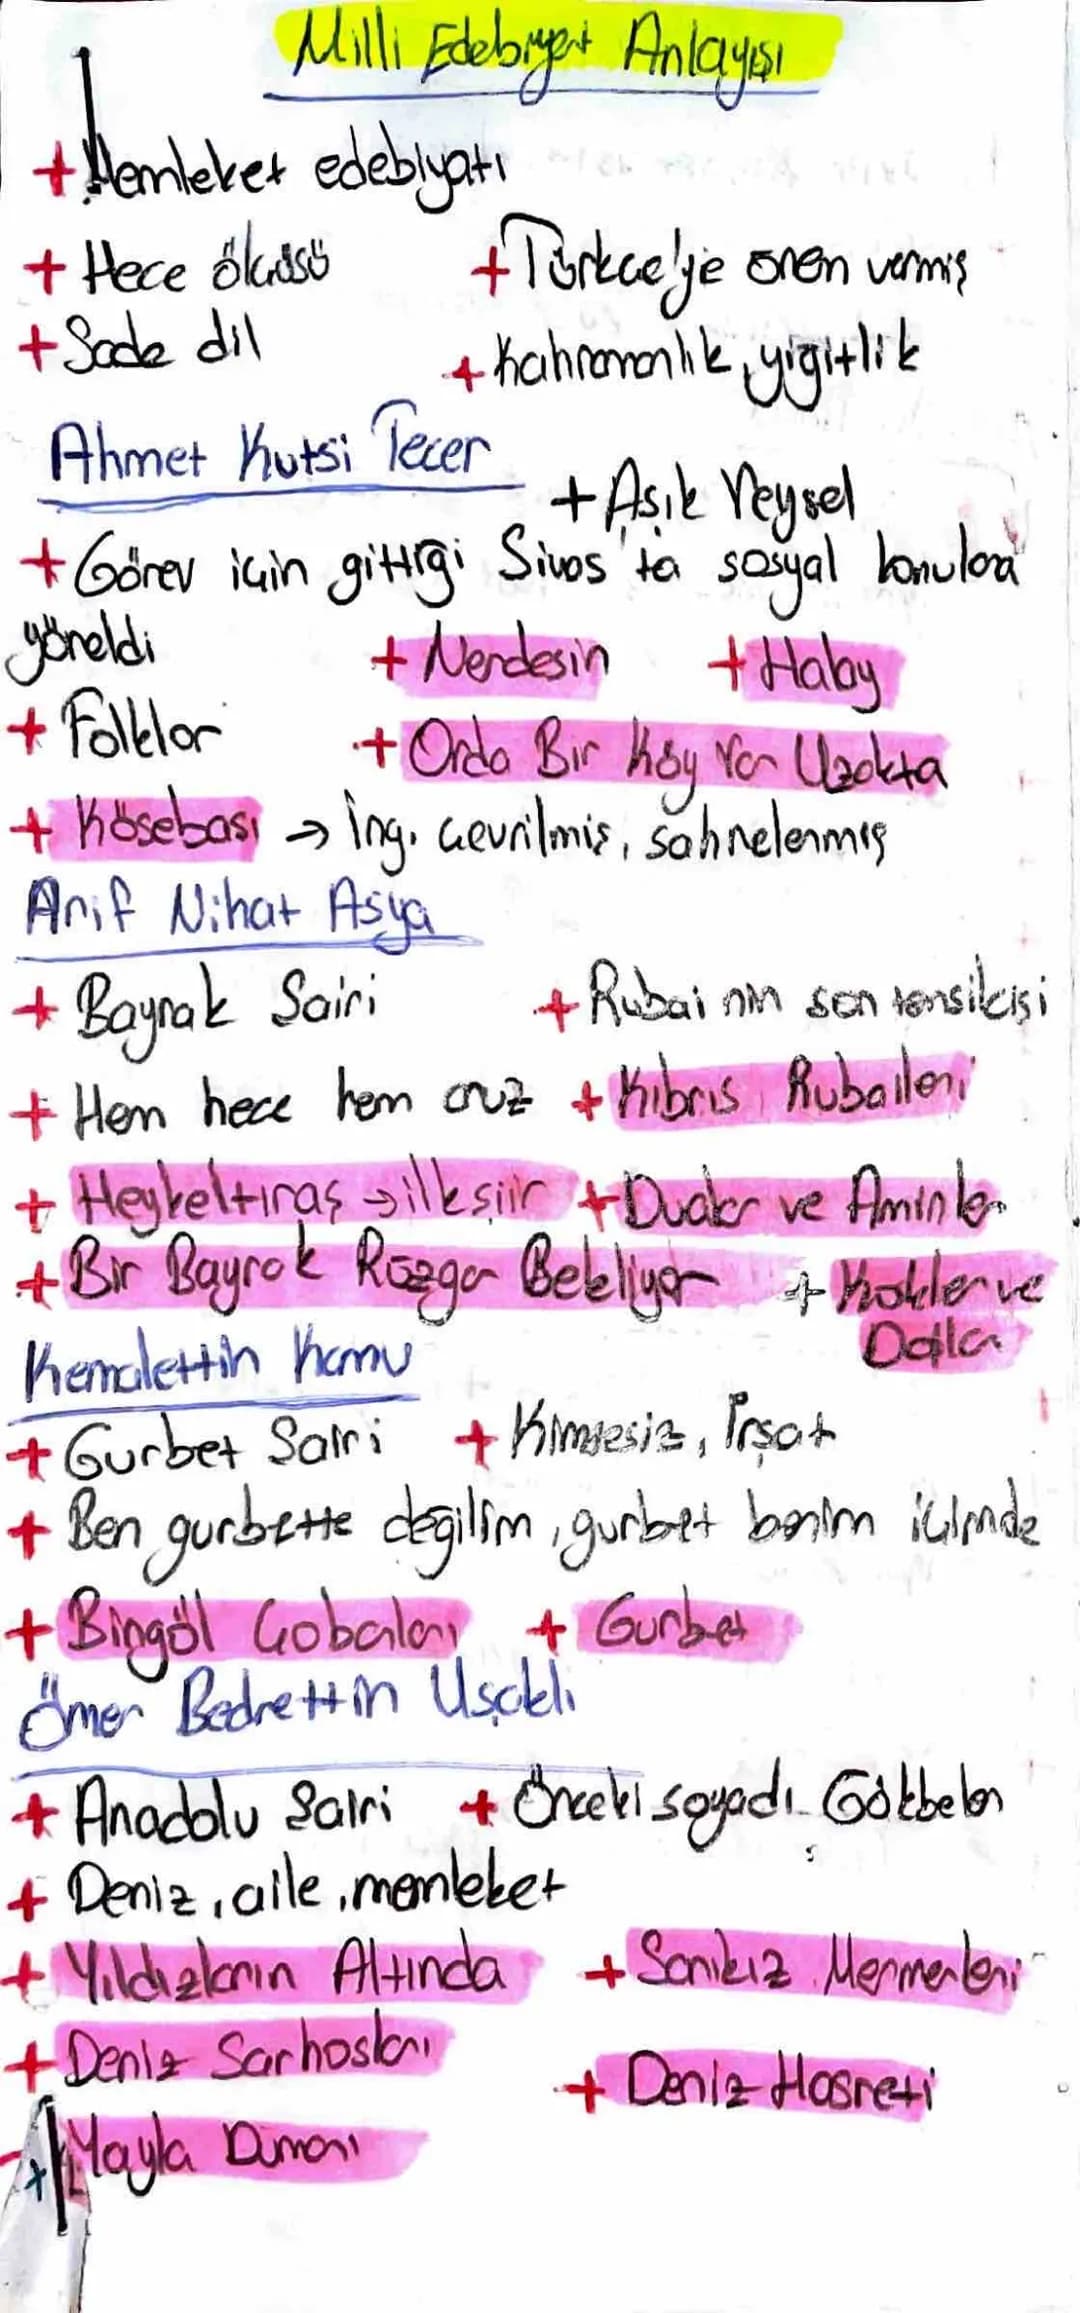 Milli Edebiyat Anlayışı
+ Memleket edebiyatı
+ Hece ölçüsü + Türkçe'ye önem vermiş
+ Sade dil + Kahramanlık, yiğitlik
Ahmet Kutsi Tecer
+ Aşık Veysel
+ Görev için gittiği Sivas'ta sosyal konulara
yöneldi + Nerdesin + Halay
+ Folklor + Orda Bir Köy Var Uzakta
+ Köşebaşı → İng. çevrilmiş, sahnelenmiş
Arif Nihat Asya
+ Bayrak Şairi + Rubai nin son temsilcisi
+ Hem hece hem aruz + Kıbrıs Rubaileri
+ Heykeltıraş → ilk şiir + Dualar ve Aminler
+ Bir Bayrak Rüzgar Bekliyor + Kökler ve
Dallar
Kemalettin Kamu
+ Gurbet Şairi + Kimsesiz, İrşat
+ Ben gurbette değilim, gurbet benim içimde
+ Bingöl Çobanları + Gurbet
Ömer Bedrettin Uşaklı
+ Anadolu Şairi + Önceki soyadı Gökbelen
+ Deniz, aile, memleket
+ Yıldızların Altında + Sarıkız Mermerleri
+ Deniz Sarhoşları
+ Deniz Hasreti
+ Yayla Dumanı